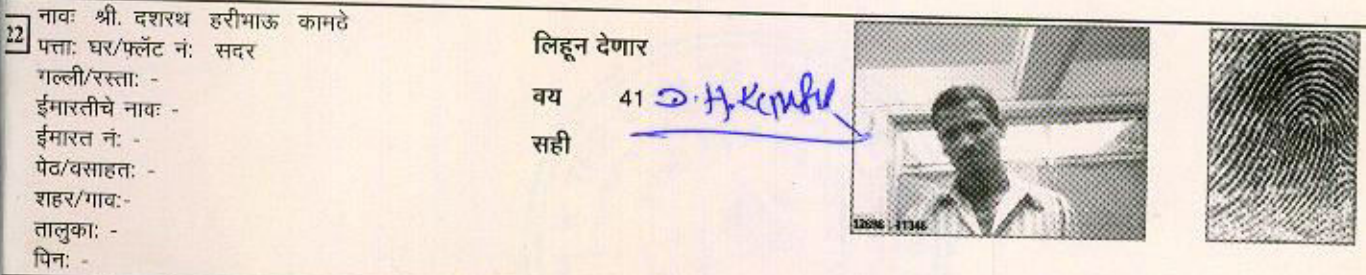 22
नावः श्री. दशरथ हरीभाऊ कामठे
पत्ता: घर/फ्लॅट नं: सदर
गल्ली/रस्ता: -
ईमारतीचे नावः -
ईमारत नं: -
पेठ/वसाहत: -
शहर/गाव:-
तालुका: -
पिन: -
लिहून देणार
वय 41
सही
D.H.